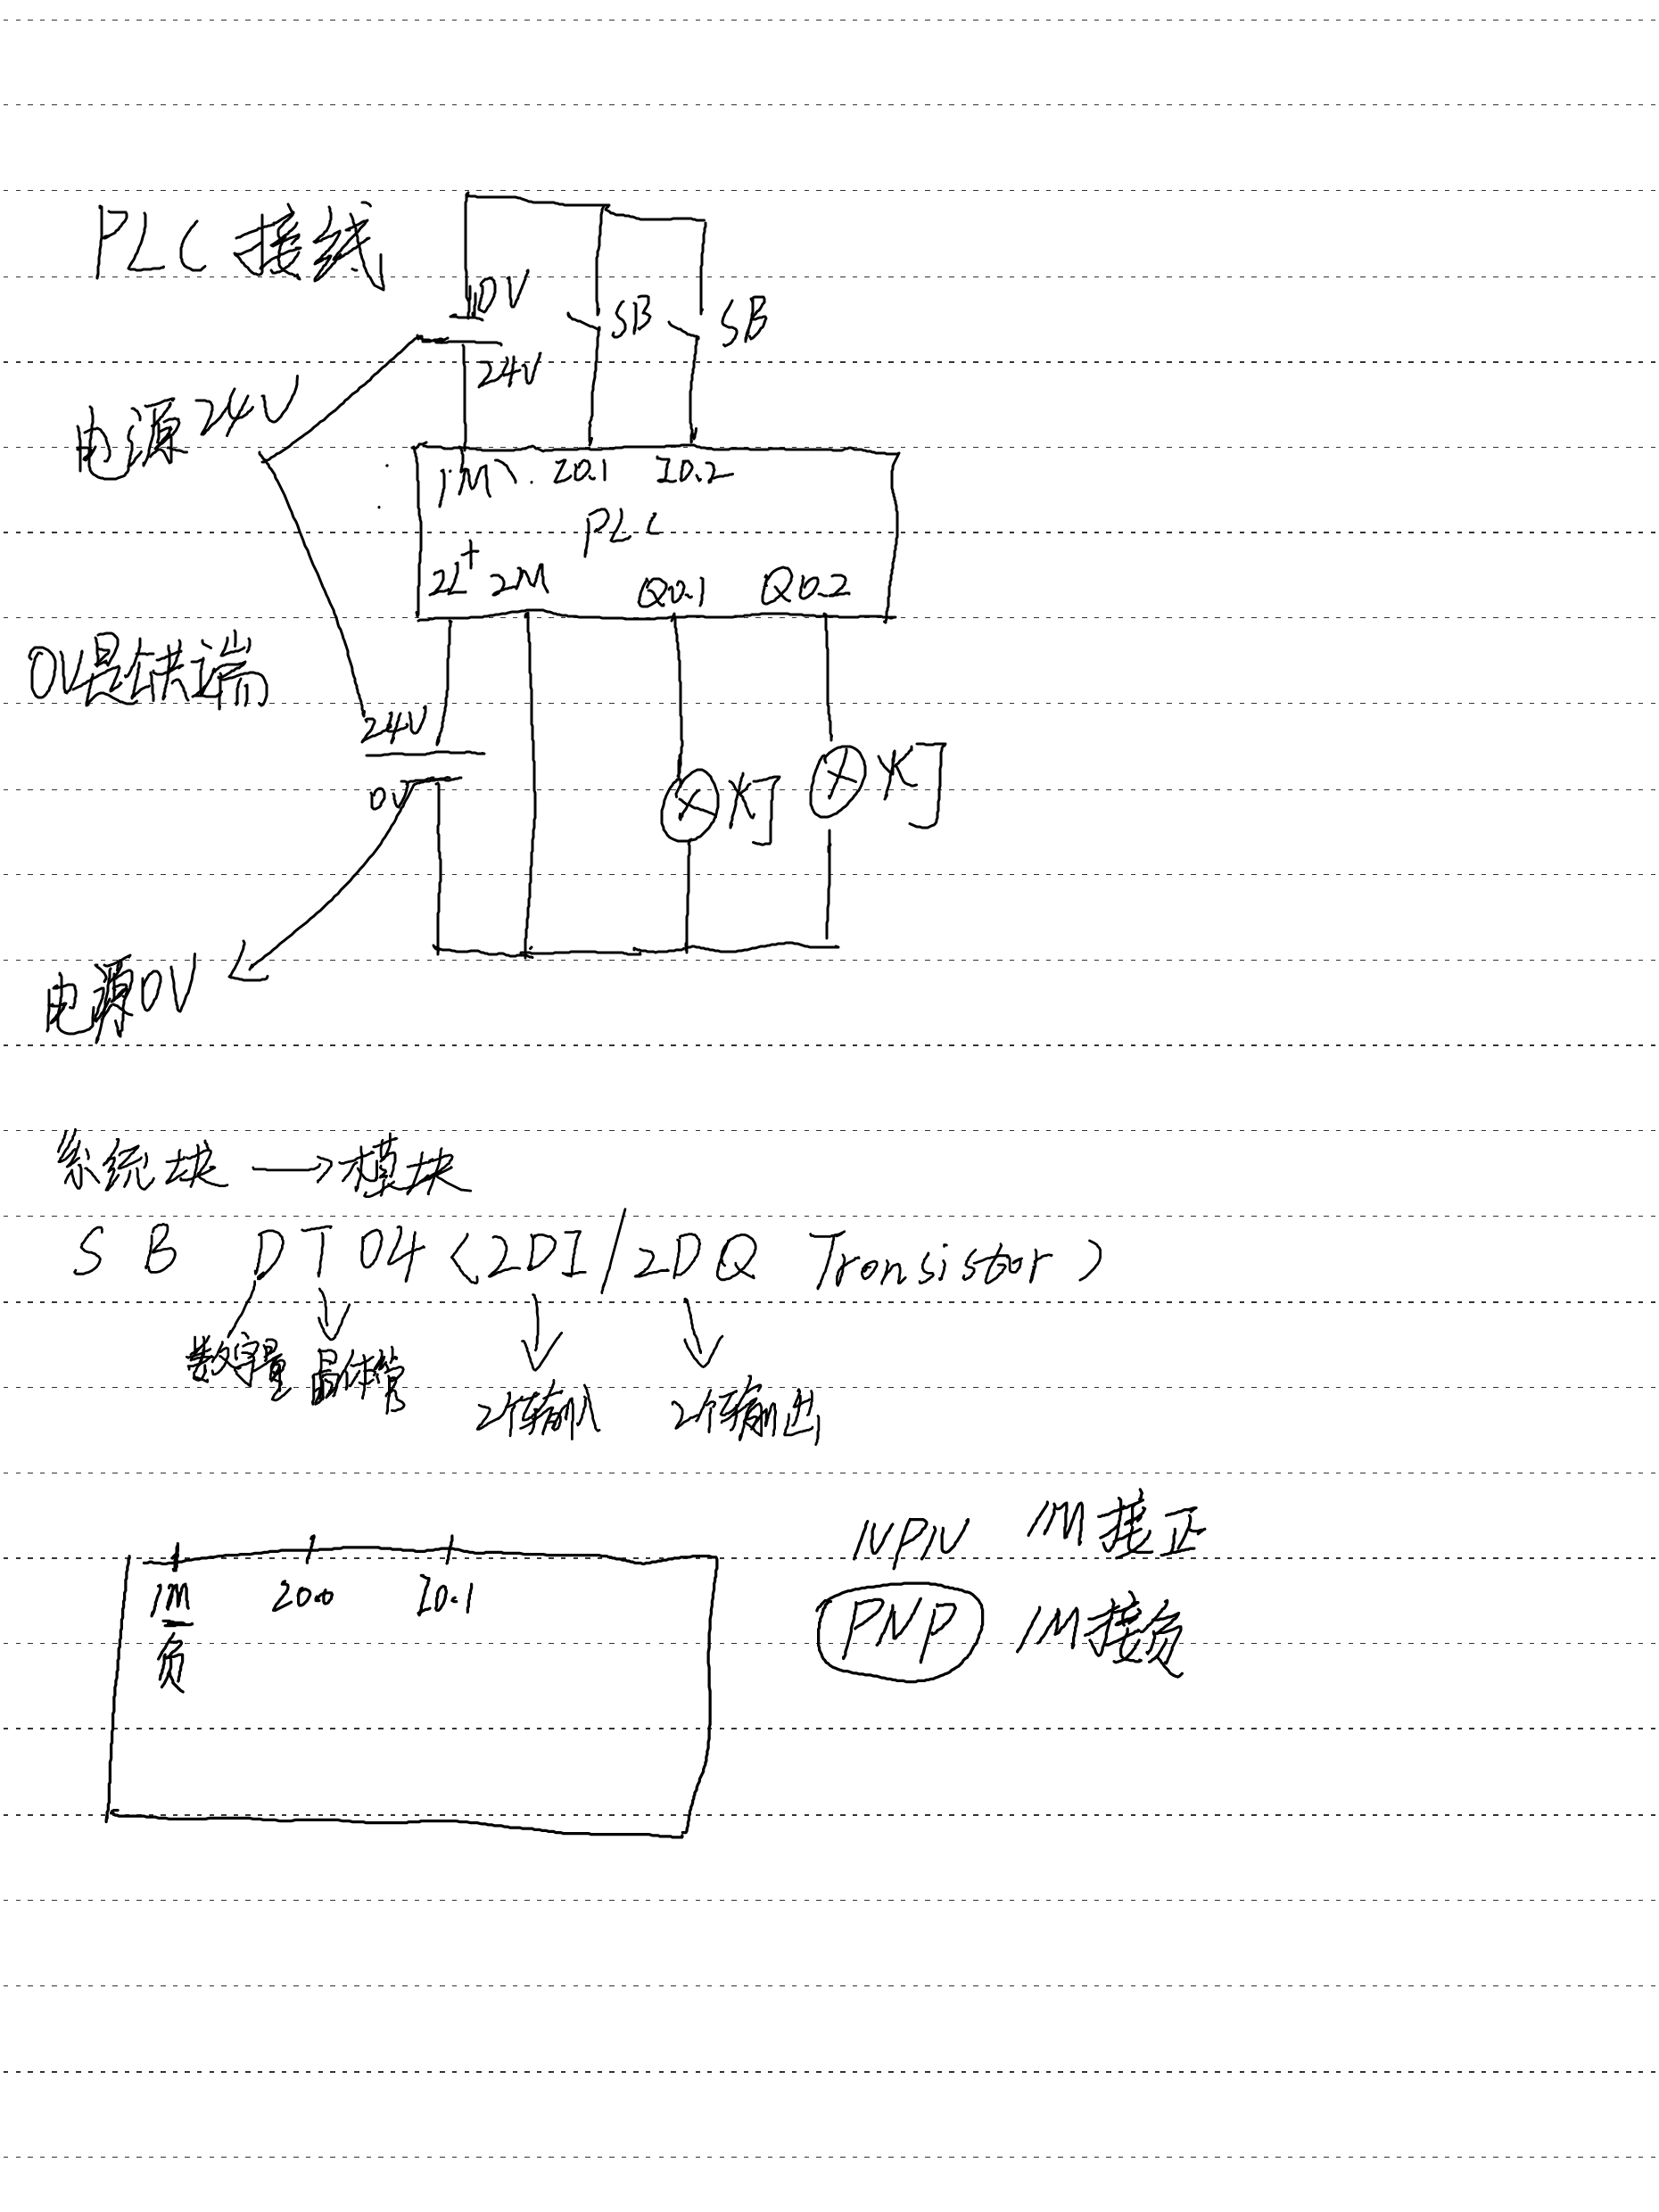 PLC 接线
0V
SB
SB
24V
电源 24V
1M
I0.1
I0.2
PLC
2L+ 2M
Q0.1
Q0.2
0V是供端
24V
0V
灯
灯
电源0V
系统块 → 模块
S B DT04 (2DI/2DQ Transistor)
数字量 晶体管
2个输入 2个输出
NPN 1M接正
1M I0.0 I0.1
负
PNP 1M接负